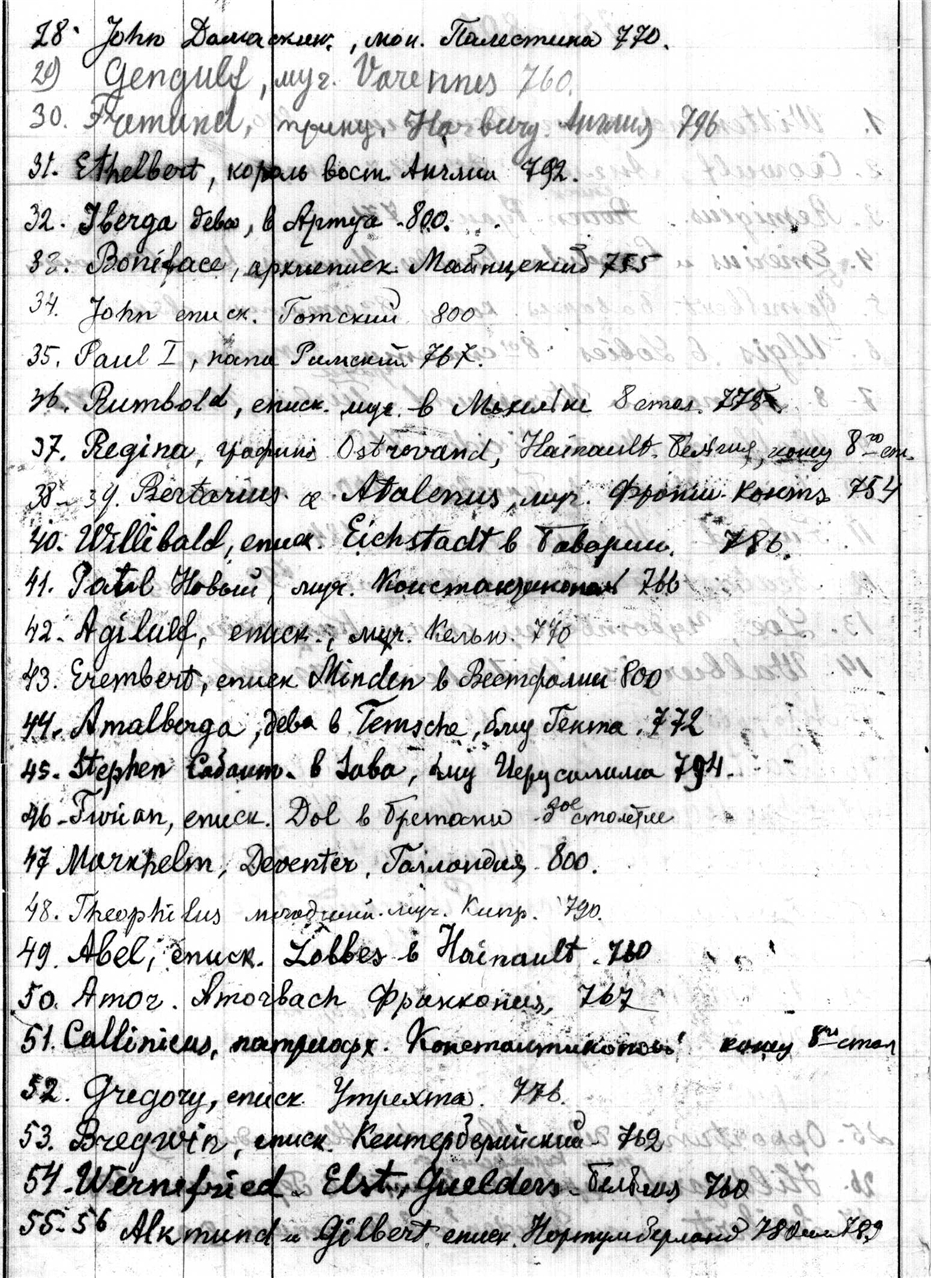 28. John Дамаскин., мон. Палестина 770.
29) Gengulf, муч. Varennes 760.
30. Fremund, принц, Harburg Англия 796
31. Ethelbert, король вост. Англии 792.
32. Iberga дева, в Артуа 800.
33. Boniface, архиеписк. Майнцский 755
34. John еписк. Готский 800
35. Paul I, папа Римский 767.
36. Rumbold, еписк. муч. в Мехелне 8 стол. 775.
37. Regina, графиня Ostrevand, Hainault. Бельгия, конец 8го ст.
38-39. Bertarius & Atalenus, муч. Франш-Контэ 754
40. Willibald, еписк. Eichstadt в Баварии. 786.
41. Paul Новый, муч. Константинополь 766
42. Agilulf, еписк., муч. Кельн. 770
43. Erembert, еписк Minden в Вестфалии 800
44. Amalberga, дева в Temsche, близ Гента. 772
45. Stephen Саваит. в Saba, близ Иерусалима 794.
46. Turian, еписк. Dol в Бретани 8ое столетие
47 Markhelm, Deventer, Голландия 800.
48. Theophilus муч. Кипр. 790.
49. Abel, еписк. Lobbes в Hainault. 760
50. Amor. Amorbach Франкония, 767
51. Callinicus, патриарх. Константинополь конец 8го стол
52. Gregory, еписк Утрехта. 776.
53. Bregwin, еписк. Кентерберийский 762
54. Wernefried. Elst, Guelders - Бельгия 760
55-56 Alkmund и Gilbert еписк. Нортумберланд 780 или 789